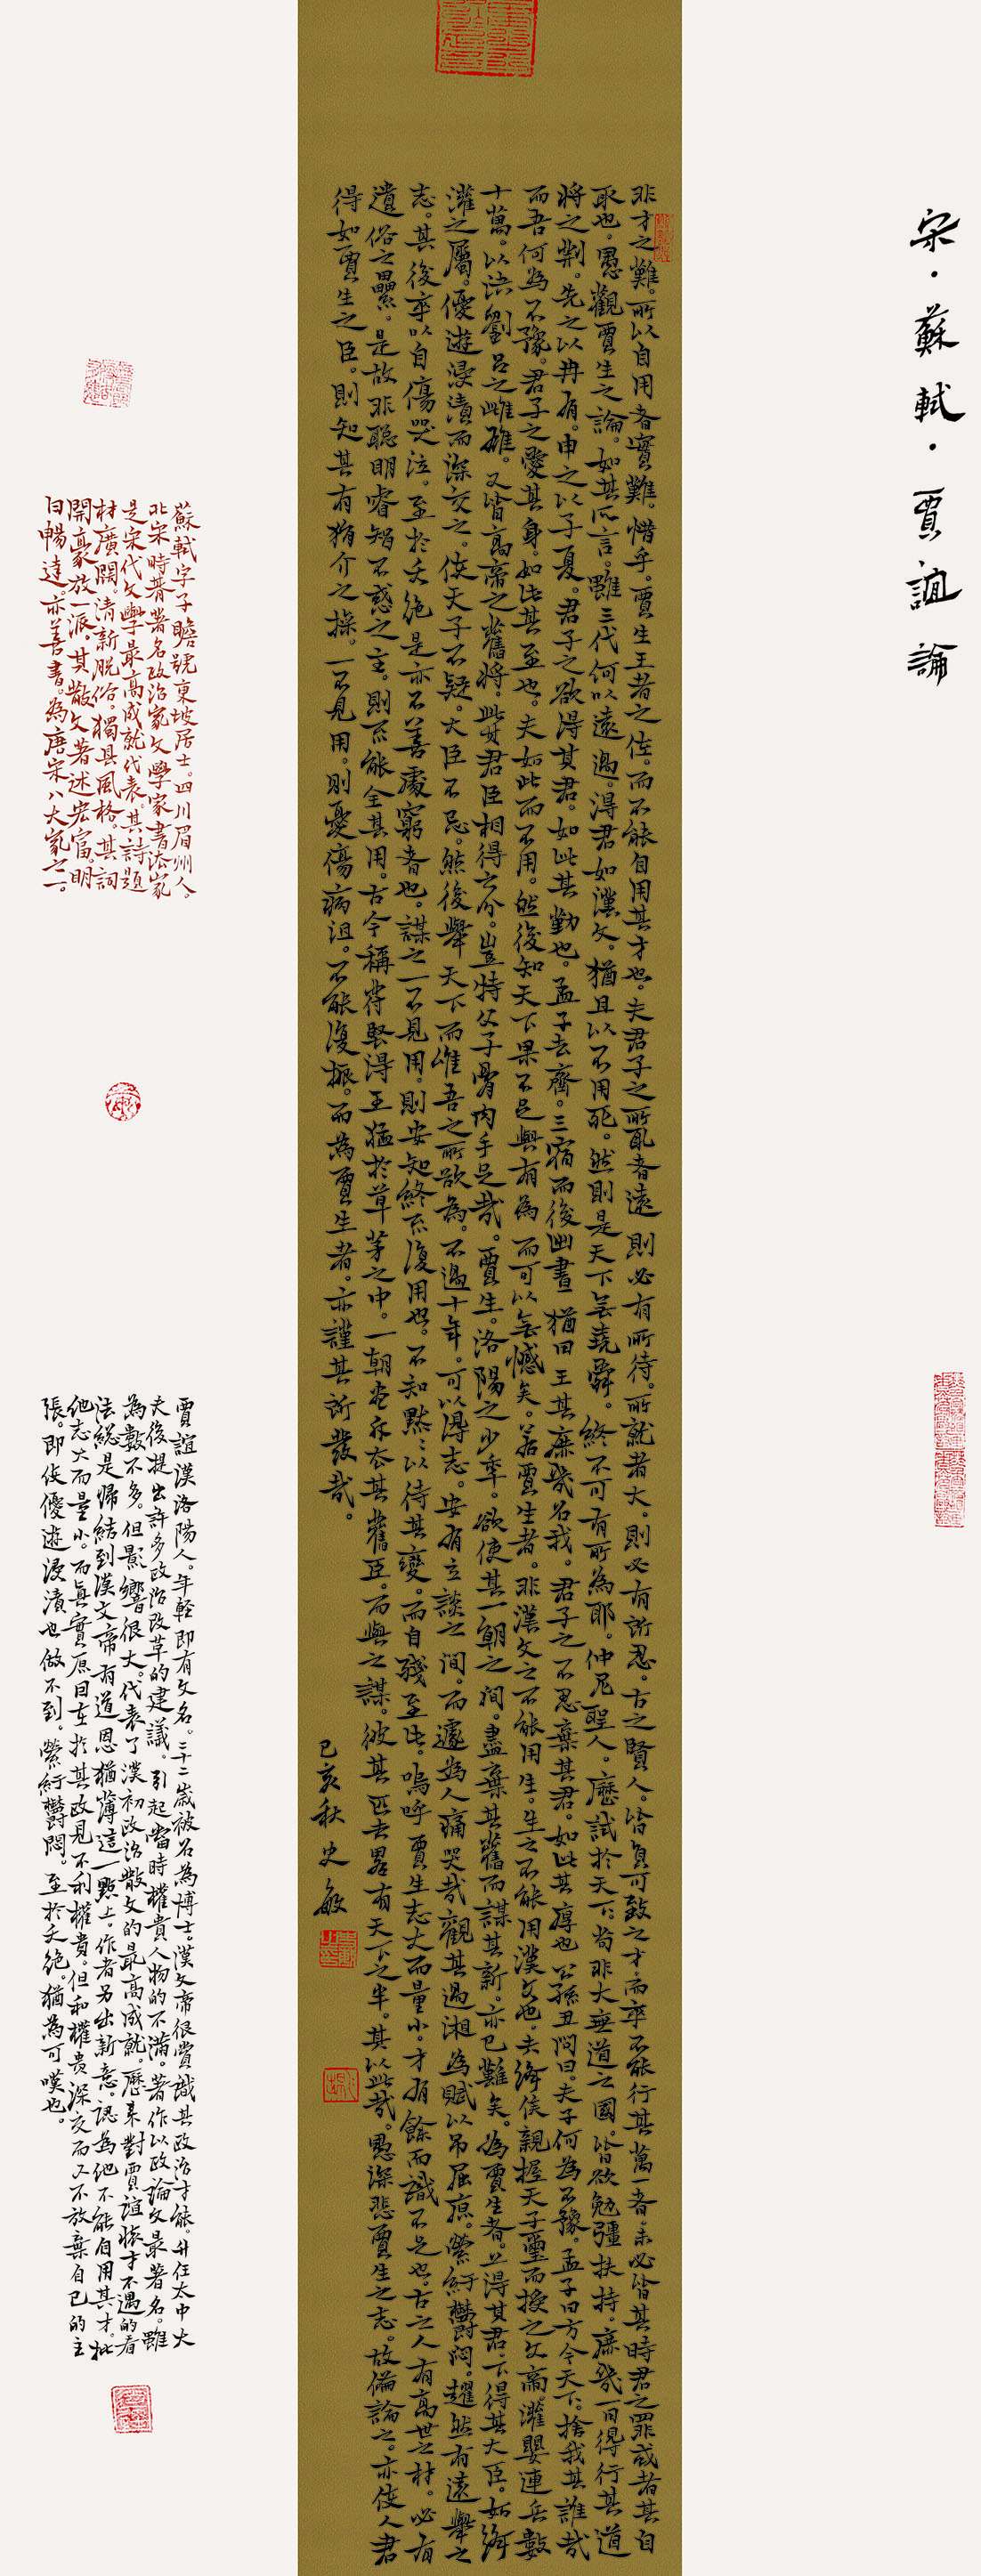 宋·蘇軾·賈誼論
非才之難。所以自用者實難。惜乎。賈生王者之佐。而不能自用其才也。夫君子之所取者遠則必有所待。所就者大。則必有所忍。古之賢人。皆負可致之才。而卒不能行其萬一者。未必皆其時君之罪或者其自
取也。愚觀賈生之論。如其所言。雖三代何以遠過。得君如漢文。猶且以不用死。然則是天下無堯舜。終不可有所為耶。仲尼聖人。歷試於天下。尚非大無道之國。皆欲勉彊扶持。庶幾一日得行其道
將之荆。先之以冉有。申之以子夏。君子之欲得其君。如此其勤也。孟子去齊。三宿而後出晝猶曰王其庶幾召我。君子之不忍棄其君。如此其厚也公孫丑問曰。夫子何為不豫。孟子曰方今天下。捨我其誰哉
而吾何為不豫。君子之愛其身。如此其至也。夫如此而不用。然後知天下果不足與有為而可以無憾矣。若賈生者。非漢文之不能用生。生之不能用漢文也。夫絳侯親握天子璽而授之文帝。灌嬰連兵數
十萬。以決劉呂之雌雄。又皆高帝之舊將。此其君臣相得之分。豈特父子骨肉手足哉。賈生。洛陽之少年。欲使其一朝之間。盡棄其舊而謀其新。亦已難矣。為賈生者。上得其君。下得其大臣。如絳
灌之屬。優遊浸漬而深交之。使天子不疑。大臣不忌。然後舉天下而唯吾之所欲為。不過十年。可以得志。安有立談之間。而遽為人痛哭哉觀其過湘為賦以吊屈原。縈紆鬱悶。趯然有遠舉之
志。其後卒以自傷哭泣。至於夭絕是亦不善處窮者也。謀之一不見用。則安知終不復用也。不知默默以待其變。而自殘至此。嗚呼賈生志大而量小。才有餘而識不足也。古之人有高世之材。必有
遺俗之累。是故非聰明睿智不惑之主。則不能全其用。古今稱苻堅得王猛於草茅之中。一朝盡斥去其舊臣。而與之謀。彼其匹夫畧有天下之半。其以此哉。愚深悲賈生之志。故備論之。亦使人君
得如賈生之臣。則知其有狷介之操。一不見用。則憂傷病沮。不能復振。而為賈生者。亦謹其所發哉。
己亥秋史敏
蘇軾字子瞻號東坡居士。四川眉州人。
北宋時著著名政治家文學家書法家
是宋代文學最高成就代表。其詩題
材廣闊。清新脫俗。獨具風格。其詞
開豪放一派。其散文著述宏富。明
白暢達。亦善書。為唐宋八大家之一。
賈誼漢洛陽人。年輕即有文名。三十二歲被召為博士。漢文帝很賞識其政治才能。升任太中大
夫後提出許多政治改革的建議。引起當時權貴人物的不滿。著作以政論文最著名。雖
為數不多。但影響很大。代表了漢初政治散文的最高成就。歷來對賈誼懷才不遇的看
法總是歸結到漢文帝有道恩猶薄這一點上。作者另出新意。認為他不能自用其才。批
他志大而量小。而真實原因在於其政見不利權貴。但和權貴深交而又不放棄自己的主
張。即使優遊浸漬也做不到。縈紆鬱悶。至於夭絕。猶為可嘆也。